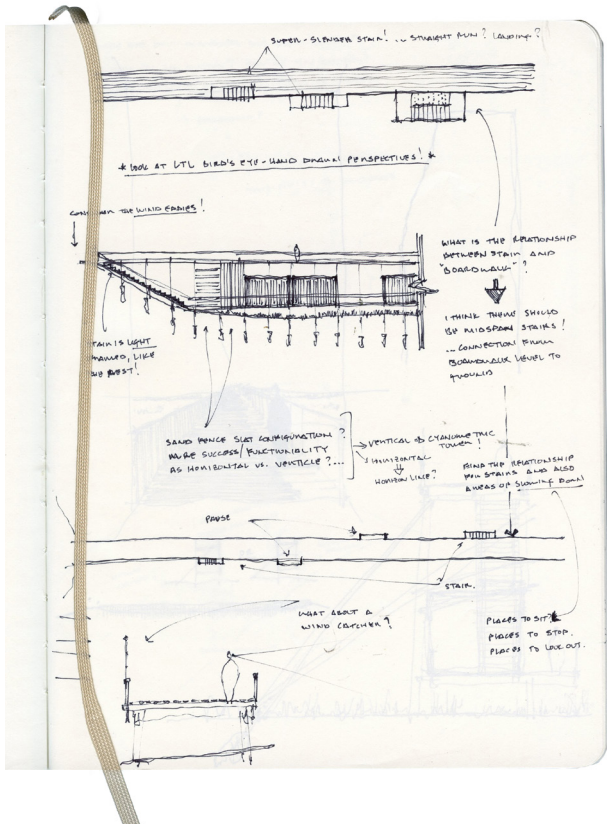 SUPER-SLENDER STAIR! ... STRAIGHT RUN? LANDING?
* LOOK AT LTL BIRD'S EYE-HAND DRAWN PERSPECTIVES! *
THE WIND EDDIES!
WHAT IS THE RELATIONSHIP
BETWEEN STAIR AND
"BOARDWALK"?
I THINK THERE SHOULD
BE MIDSPAN STAIRS!
... CONNECTION FROM
BOARDWALK LEVEL TO
GROUND
IS LIGHT
LIKE
REST!
SAND FENCE SLAT CONFIGURATION?
MORE SUCCESS/FUNCTIONALITY
AS HORIZONTAL VS. VERTICLE?...
VERTICAL CYANOMETRIC
TOWER!
HORIZONTAL
HORIZON LINE?
FIND THE RELATIONSHIP
FOR STAIRS AND ALSO
AREAS OF SLOWING DOWN
PAUSE
STAIR.
WHAT ABOUT A
WIND CATCHER?
PLACES TO SIT?
PLACES TO STOP.
PLACES TO LOOK OUT.